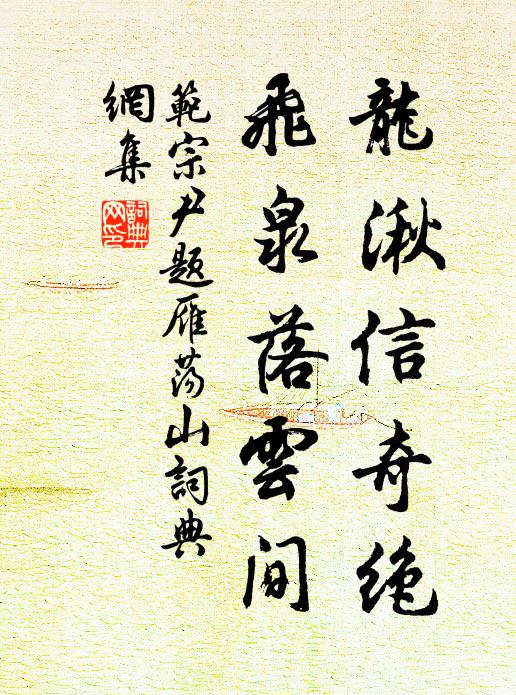 龍湫信奇絕
飛泉落雲間
範宗尹題雁蕩山詞典
網集
詞典網印